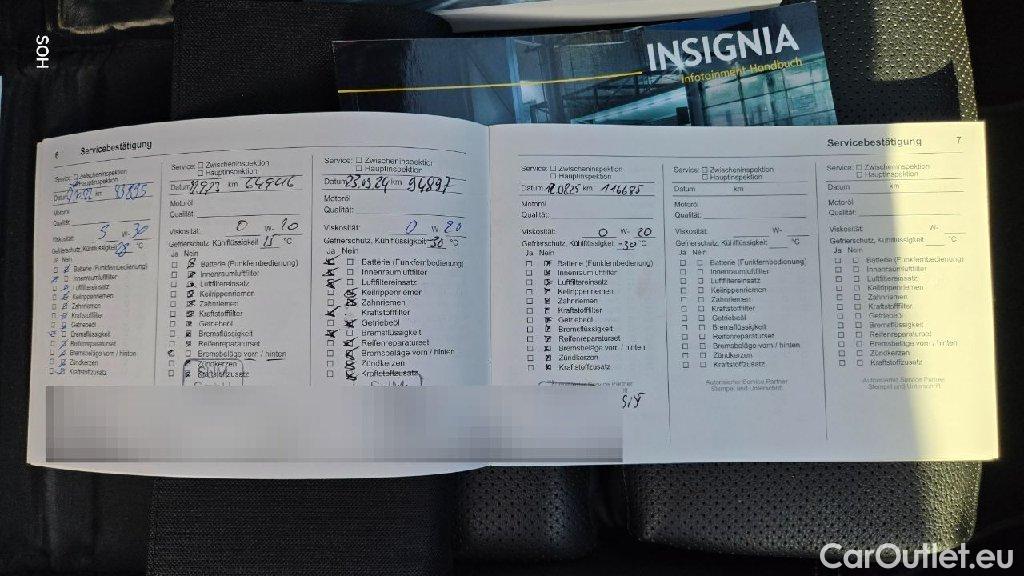 SOH
INSIGNIA
Infotainment Handbuch
6 Servicebestätigung
Service: ☐ Zwischeninspektion
Hauptinspektion
Datum km 93895
Motoröl
Qualität:
Viskosität: 5 W- 30
Gefrierschutz, Kühlflüssigkeit °C
Ja Nein
Batterie (Funkfernbedienung)
Innenraumluftfilter
Luftfiltereinsatz
Keilrippenriemen
Zahnriemen
Kraftstofffilter
Getriebeöl
Bremsflüssigkeit
Reifenreparaturset
Bremsbeläge vorn / hinten
Zündkerzen
Kraftstoffzusatz
Service: ☐ Zwischeninspektion
☐ Hauptinspektion
Datum km
Motoröl
Qualität:
Viskosität: 0 W- 20
Gefrierschutz, Kühlflüssigkeit °C
Ja Nein
Batterie (Funkfernbedienung)
Innenraumluftfilter
Luftfiltereinsatz
Keilrippenriemen
Zahnriemen
Kraftstofffilter
Getriebeöl
Bremsflüssigkeit
Reifenreparaturset
Bremsbeläge vorn / hinten
Zündkerzen
Kraftstoffzusatz
Service: ☐ Zwischeninspektion
☐ Hauptinspektion
Datum 23.09.24 km 94897
Motoröl
Qualität:
Viskosität: 0 W- 20
Gefrierschutz, Kühlflüssigkeit -30 °C
Ja Nein
Batterie (Funkfernbedienung)
Innenraumluftfilter
Luftfiltereinsatz
Keilrippenriemen
Zahnriemen
Kraftstofffilter
Getriebeöl
Bremsflüssigkeit
Reifenreparaturset
Bremsbeläge vorn / hinten
Zündkerzen
Kraftstoffzusatz
Servicebestätigung 7
Service: ☐ Zwischeninspektion
☐ Hauptinspektion
Datum km 116685
Motoröl
Qualität:
Viskosität: 0 W- 20
Gefrierschutz, Kühlflüssigkeit -30 °C
Ja Nein
Batterie (Funkfernbedienung)
Innenraumluftfilter
Luftfiltereinsatz
Keilrippenriemen
Zahnriemen
Kraftstofffilter
Getriebeöl
Bremsflüssigkeit
Reifenreparaturset
Bremsbeläge vorn / hinten
Zündkerzen
Kraftstoffzusatz
Service Partner
Service: ☐ Zwischeninspektion
☐ Hauptinspektion
Datum km
Motoröl
Qualität:
Viskosität: W-
Gefrierschutz, Kühlflüssigkeit °C
Ja Nein
☐ ☐ Batterie (Funkfernbedienung)
☐ ☐ Innenraumluftfilter
☐ ☐ Luftfiltereinsatz
☐ ☐ Keilrippenriemen
☐ ☐ Zahnriemen
☐ ☐ Kraftstofffilter
☐ ☐ Getriebeöl
☐ ☐ Bremsflüssigkeit
☐ ☐ Reifenreparaturset
☐ ☐ Bremsbeläge vorn / hinten
☐ ☐ Zündkerzen
☐ ☐ Kraftstoffzusatz
Autorisierter Service Partner
Stempel und Unterschrift
Service: ☐ Zwischeninspektion
☐ Hauptinspektion
Datum km
Motoröl
Qualität:
Viskosität: W-
Gefrierschutz, Kühlflüssigkeit °C
Ja Nein
☐ ☐ Batterie (Funkfernbedienung)
☐ ☐ Innenraumluftfilter
☐ ☐ Luftfiltereinsatz
☐ ☐ Keilrippenriemen
☐ ☐ Zahnriemen
☐ ☐ Kraftstofffilter
☐ ☐ Getriebeöl
☐ ☐ Bremsflüssigkeit
☐ ☐ Reifenreparaturset
☐ ☐ Bremsbeläge vorn / hinten
☐ ☐ Zündkerzen
☐ ☐ Kraftstoffzusatz
Autorisierter Service Partner
Stempel und Unterschrift
CarOutlet.eu